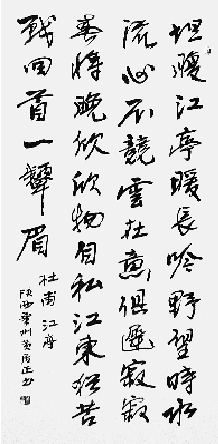 坦腹江亭暖長吟野望時水
流心不競雲在意俱遲寂寂
春將晚欣欣物自私江東猶苦
戰回首一顰眉
杜甫江亭
陕西華州